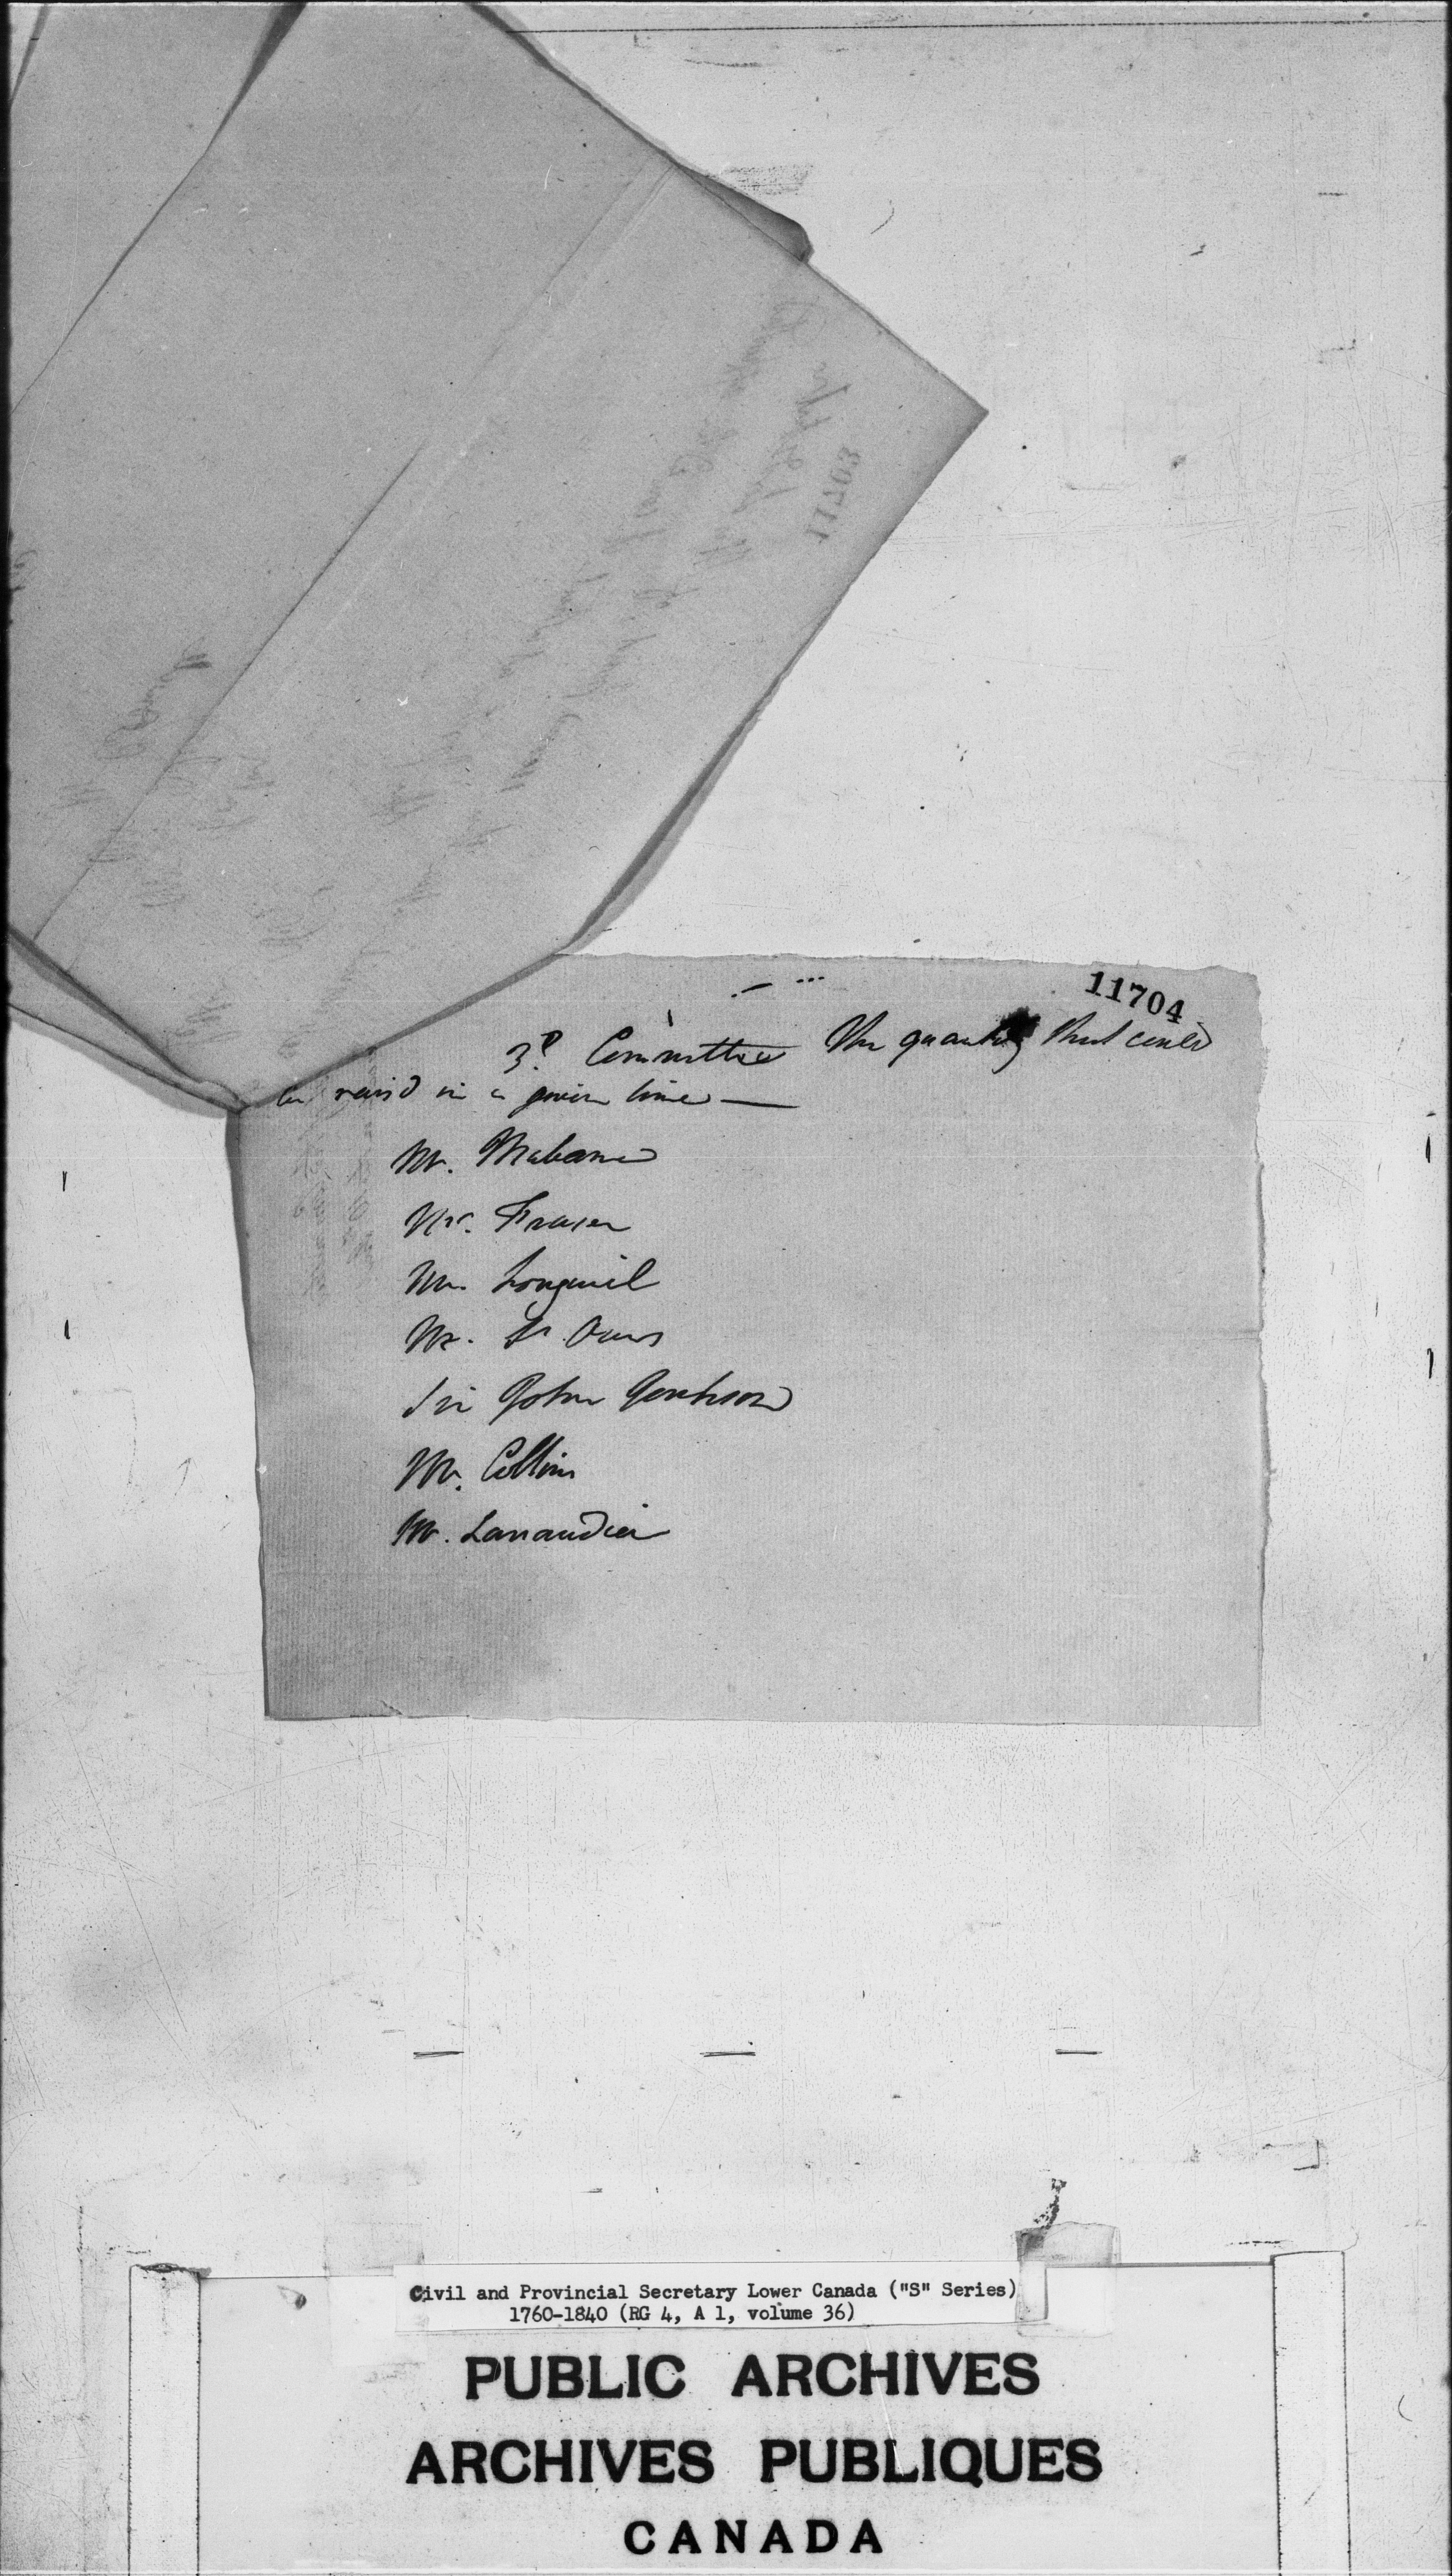 11703
11704
3d. Committee The quantity that could
be rais'd in a given time —
Mr. Mabane
Mr. Fraser
Mr. Longueil
Mr. St. Ours
Sir John Johnson
Mr. Collins
Mr. Lanaudier
Civil and Provincial Secretary Lower Canada ("S" Series)
1760-1840 (RG 4, A 1, volume 36)
PUBLIC ARCHIVES
ARCHIVES PUBLIQUES
CANADA